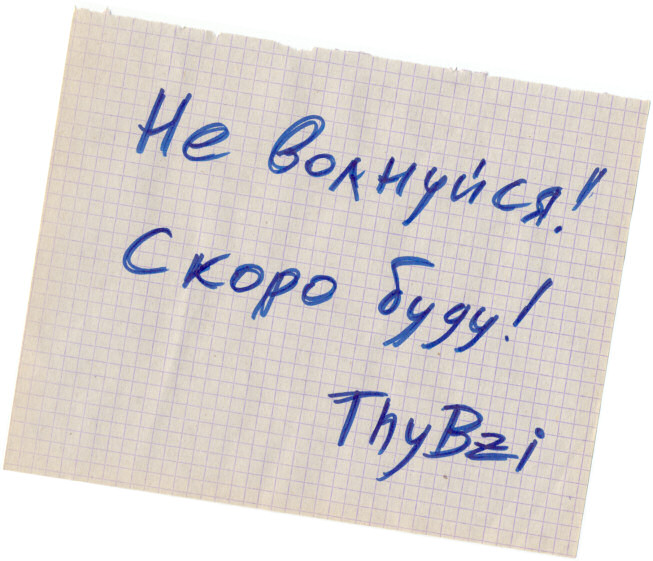 Не волнуйся!
Скоро буду!
ThyBzi